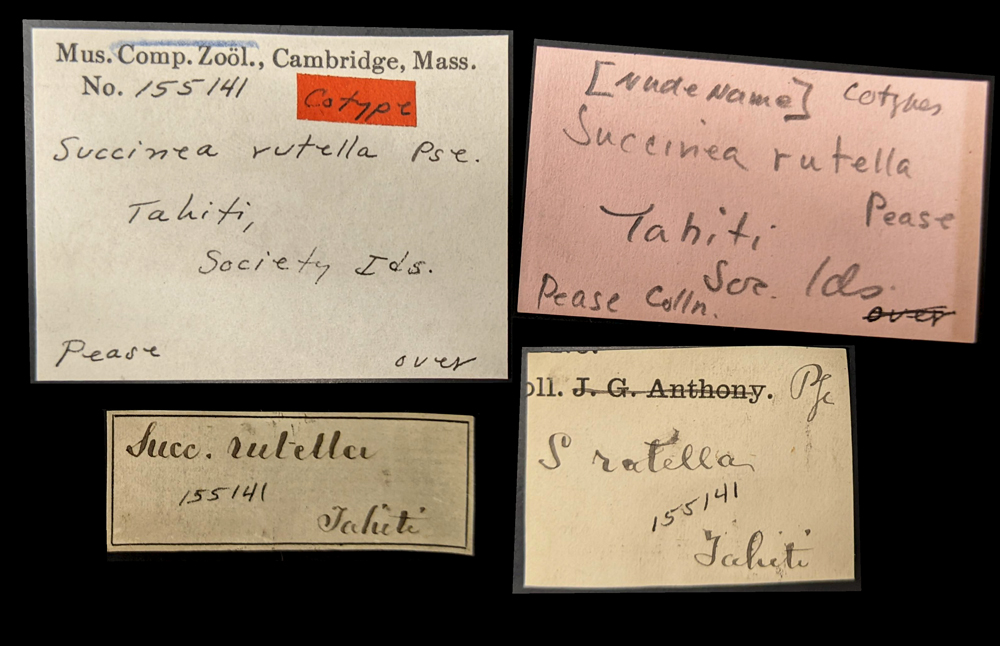 Mus. Comp. Zoöl., Cambridge, Mass.
No. 155141
Cotype
Succinea rutella Pse.
Tahiti,
Society Ids.
Pease
over
[Nude Name] Cotypes
Succinea rutella
Pease
Tahiti
Soc. Ids.
Pease Colln.
over
Succ. rutella
155141
Tahiti
oll. J. G. Anthony.
S rutella
155141
Tahiti